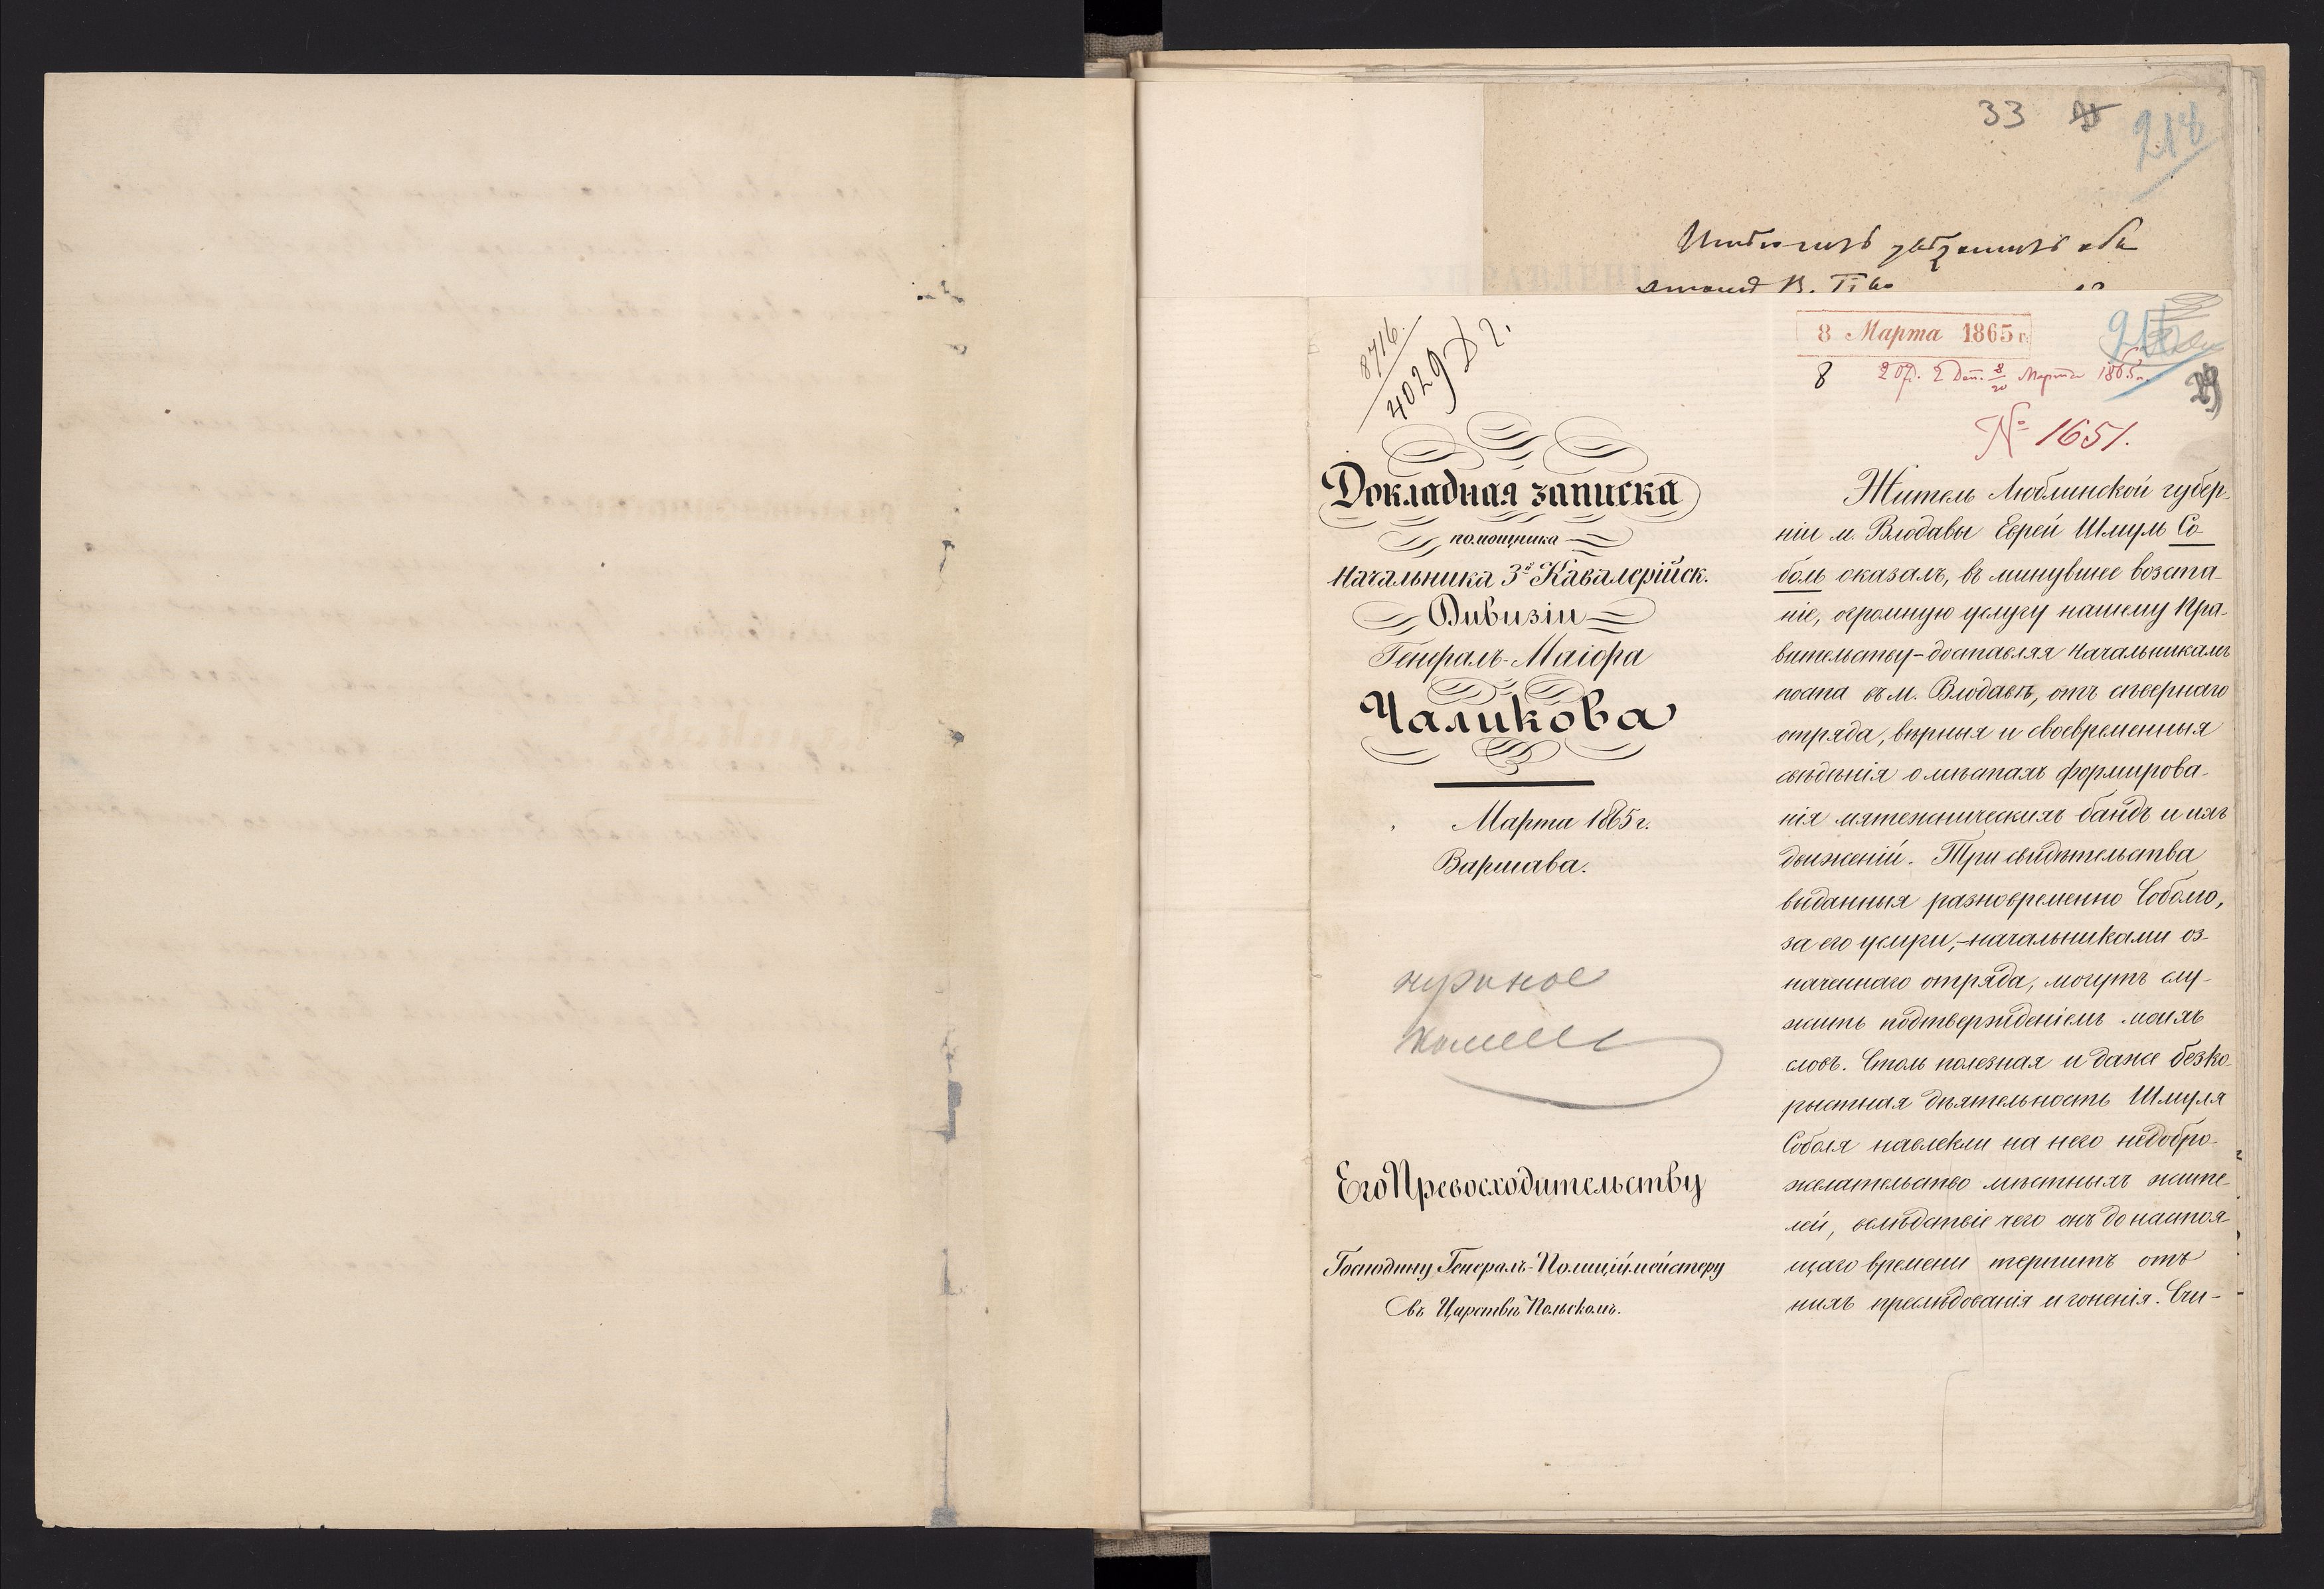 33
218
8 Марта 1865 г.
8
2 Отд. 2 Деп. 8/20 Марта 1865 г.
29
№ 1651.
8716.
4029
Докладная записка
помощника
Начальника 3й Кавалерійск.
Дивизіи
Генералъ-Маіора
Чаликова
Марта 1865 г.
Варшава.
нужное
Его Превосходительству
Господину Генералъ-Полиціймейстеру
въ Царствѣ Польскомъ.
Житель Люблинской губер-
ніи м. Влодавы Еврей Шмуль Со-
боль оказалъ, въ минувшее возста-
ніе, огромную услугу нашему Пра-
вительству-доставляя Начальникамъ
поста въ м. Влодавѣ, отъ сѣвернаго
отряда, вѣрныя и своевременныя
свѣдѣнія о мѣстахъ формирова-
нія мятежническихъ бандъ и ихъ
движеній. Три свидѣтельства
выданныя разновременно Соболю,
за его услуги,-начальниками оз-
наченнаго отряда, могутъ слу-
жить подтвержденіемъ моихъ
словъ. Столь полезная и даже безко-
рыстная дѣятельность Шмуля
Соболя навлекли на него недобро-
желательство мѣстныхъ жите-
лей, вслѣдствіе чего онъ до настоя-
щаго времени терпитъ отъ
нихъ преслѣдованія и гоненія. Счи-